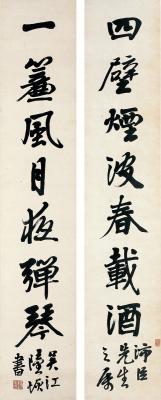 四壁煙波春載酒
沛臣
先生
之属
一簾風月夜彈琴
吴江
陸恢
書